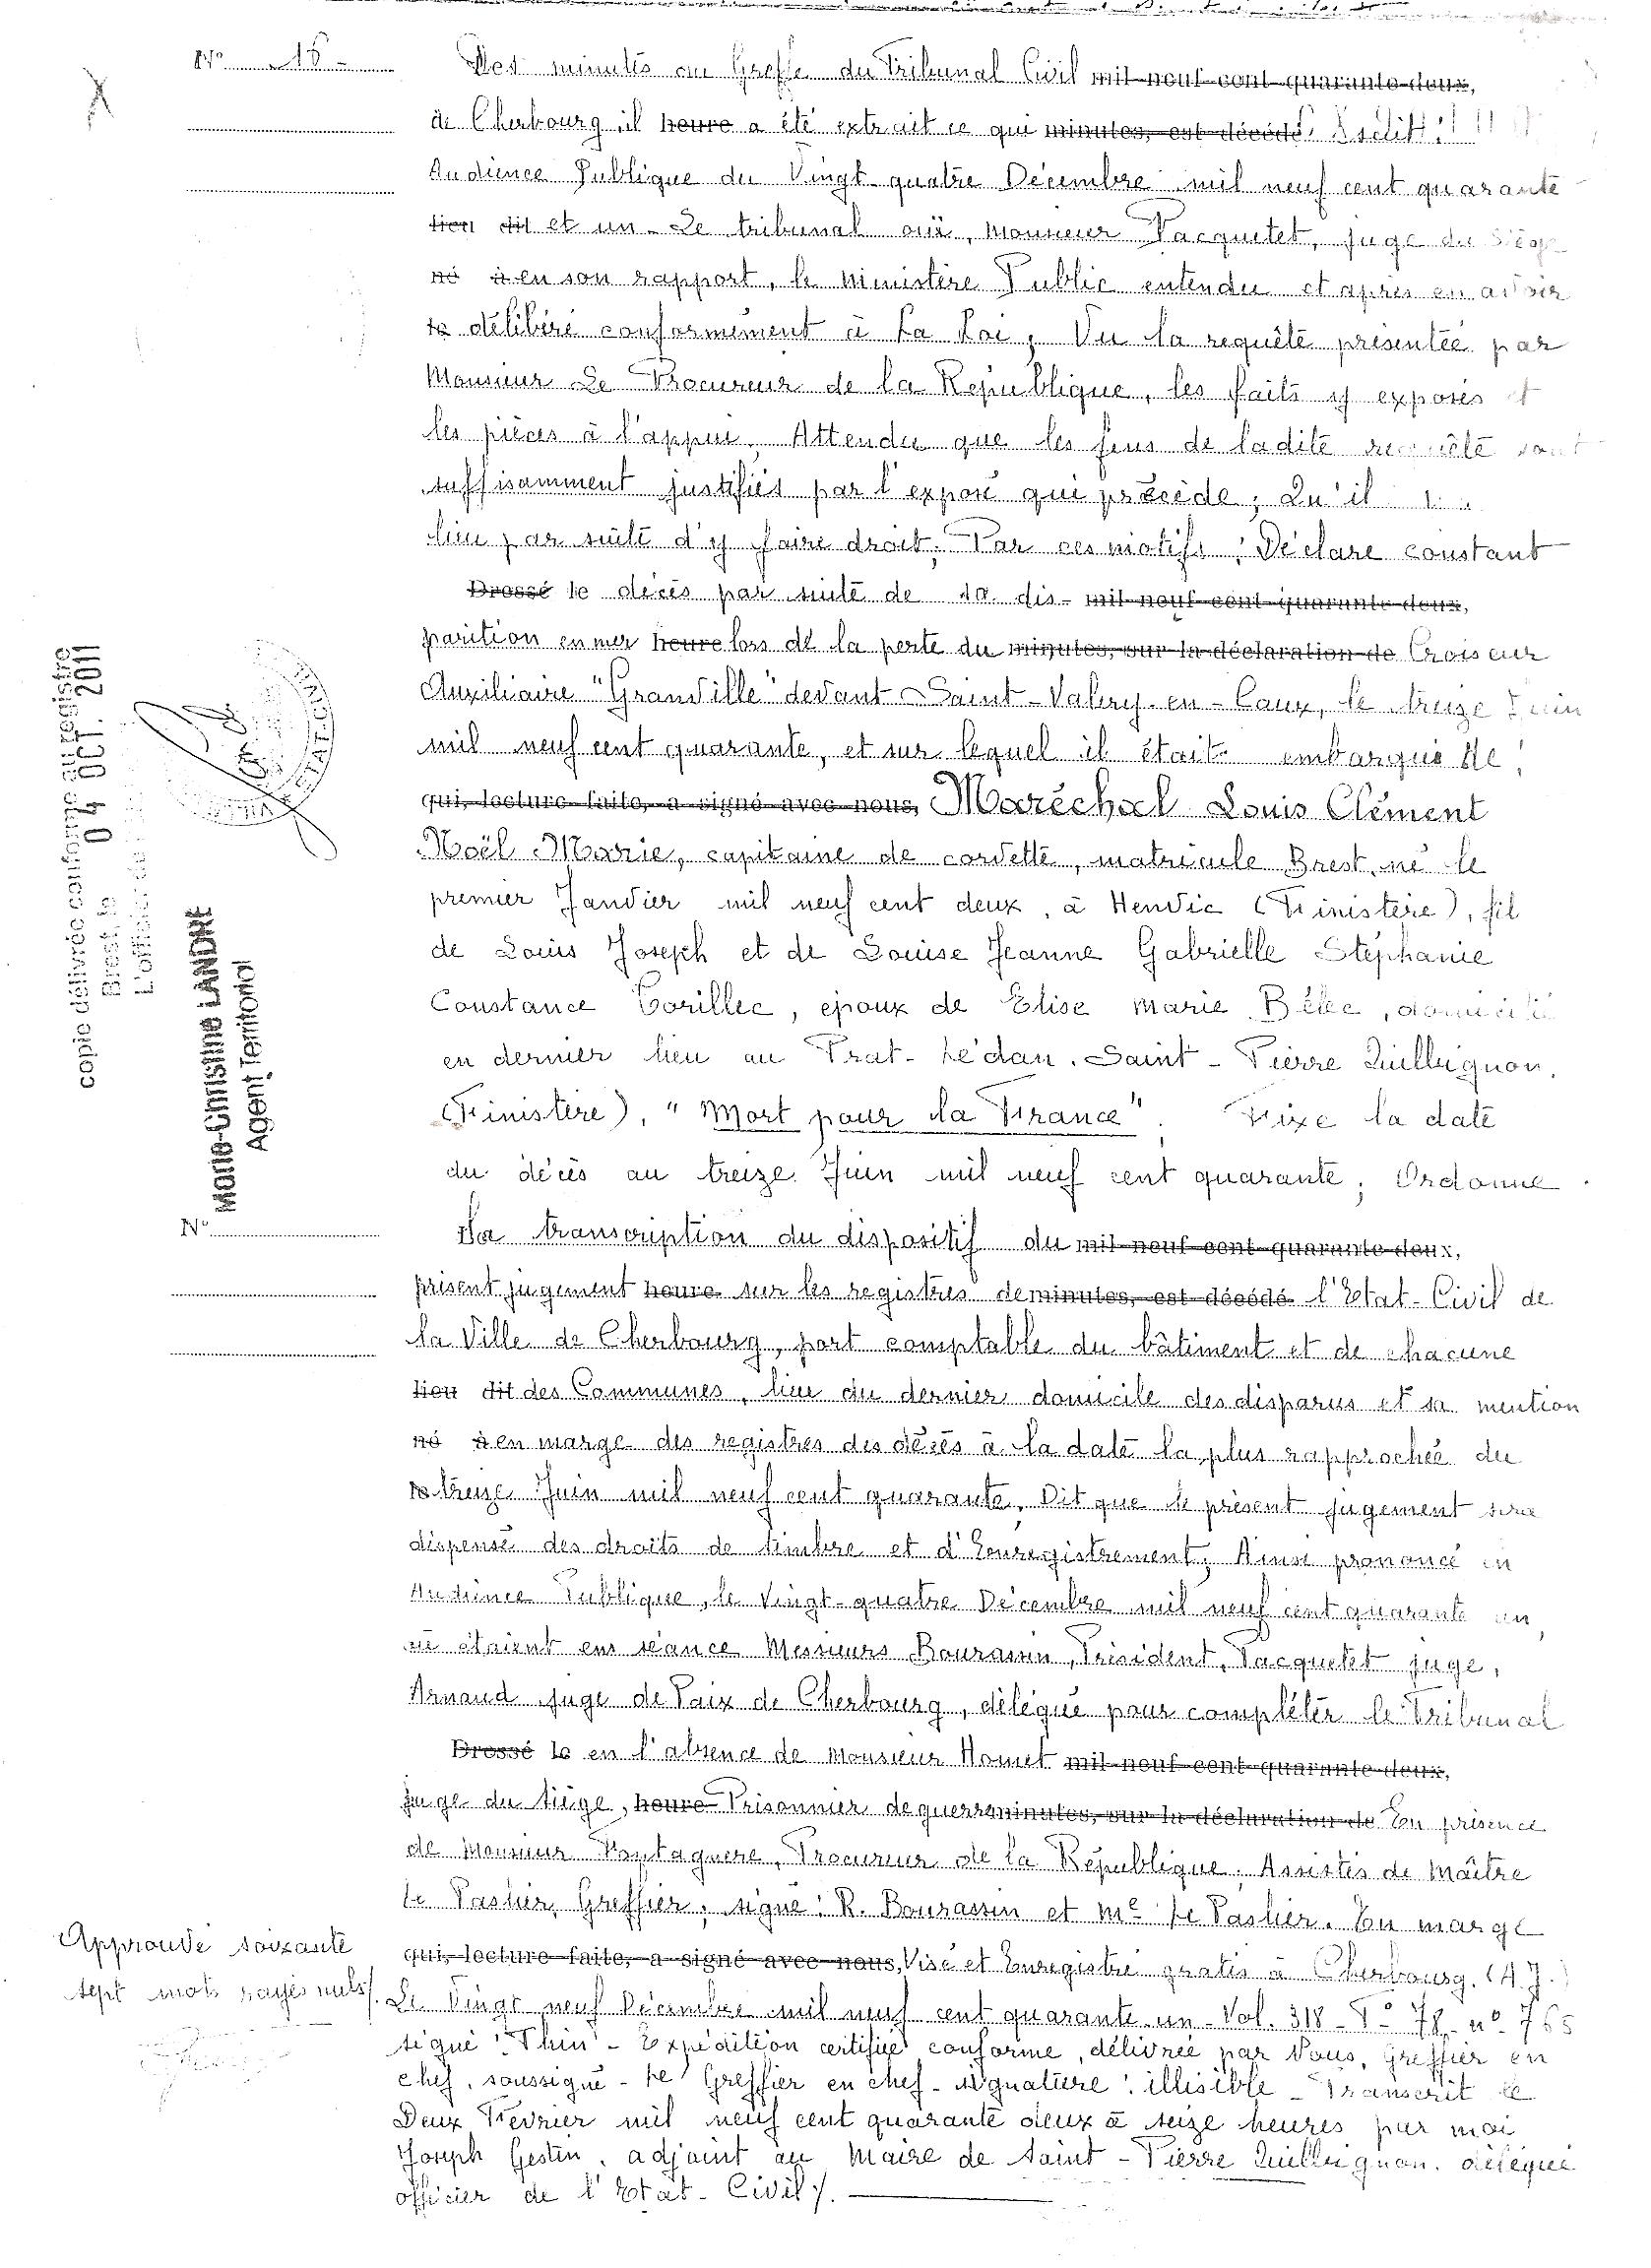 N° 16 -
Des minutes au Greffe du Tribunal Civil mil neuf cent quarante-deux,
de Cherbourg il heure a été extrait ce qui minutes, est décédé
Audience Publique du Vingt quatre Décembre mil neuf cent quarante
tion dit et un - Le tribunal ouï, Monsieur Pacquetet, juge du Siège
né à en son rapport, le Ministère Public entendu et après en avoir
to délibéré conformément à La Loi ; Vu la requête présentée par
Monsieur Le Procureur de la République, les faits y exposés et
les pièces à l'appui ; Attendu que les fins de ladite requête sont
suffisamment justifiés par l'exposé qui précède ; Qu'il
lieu par suite d'y faire droit ; Par ces motifs ; Déclare constant
Dressé le décès par suite de la dis- mil neuf cent quarante-deux,
parition en mer heure lors de la perte du minutes, sur la déclaration de Croiseur
Auxiliaire "Granville" devant Saint-Valery-en-Caux, le treize Juin
mil neuf cent quarante, et sur lequel il était embarqué de
qui, lecture faite, a signé avec nous, Maréchal Louis Clément
Noël Marie, capitaine de corvette, matricule Brest, né le
premier Janvier mil neuf cent deux, à Henvic (Finistère), fil
de Louis Joseph et de Louise Jeanne Gabrielle Stéphanie
Constance Corillec, époux de Elise Marie Béléc, domicilié
en dernier lieu au Prat-Lédan, Saint-Pierre Quilbignon,
(Finistère), "Mort pour la France". Fixe la date
du décès au treize Juin mil neuf cent quarante ; Ordonne
N°
La transcription du dispositif du mil neuf cent quarante-deux,
présent jugement heure sur les registres de minutes, est décédé l'Etat-Civil de
la Ville de Cherbourg, port comptable du bâtiment et de chacune
tion dit des Communes, lieu du dernier domicile des disparus et sa mention
né à en marge des registres des décès à la date la plus rapprochée du
to treize Juin mil neuf cent quarante, Dit que le présent jugement sera
dispensé des droits de timbre et d'Enregistrement ; Ainsi prononcé en
Audience Publique, le Vingt-quatre Décembre mil neuf cent quarante un,
où étaient en séance Messieurs Bourassin, Président, Pacquetet juge,
Arnaud juge de Paix de Cherbourg, délégué pour compléter le Tribunal
Dressé le en l'absence de Monsieur Homet mil neuf cent quarante-deux,
juge du Siège, heure Prisonnier de guerre minutes, sur la déclaration de En présence
de Monsieur Procureur de la République. Assistés de Maître
le Paslier, Greffier, signé : R. Bourassin et Me Le Paslier. En marge
qui, lecture faite, a signé avec nous, Visé et Enregistré gratis à Cherbourg. (A.J.)
Le Vingt neuf Décembre mil neuf cent quarante-un - Vol. 318 - F° 78 - n° 765
signé : Thin - Expédition certifiée conforme, délivrée par Nous, Greffier en
chef, soussigné - Le Greffier en chef - signature : illisible - Transcrit le
Deux Février mil neuf cent quarante deux à seize heures par moi
Joseph Gestin, adjoint au Maire de Saint-Pierre Quilbignon, délégué
officier de l'Etat-Civil /.
Approuvé soixante
sept mots rayés nuls /.
copie délivrée conforme au registre
Brest, le 04 OCT. 2011
L'officier de
Marie-Christine LANDRE
Agent Territorial